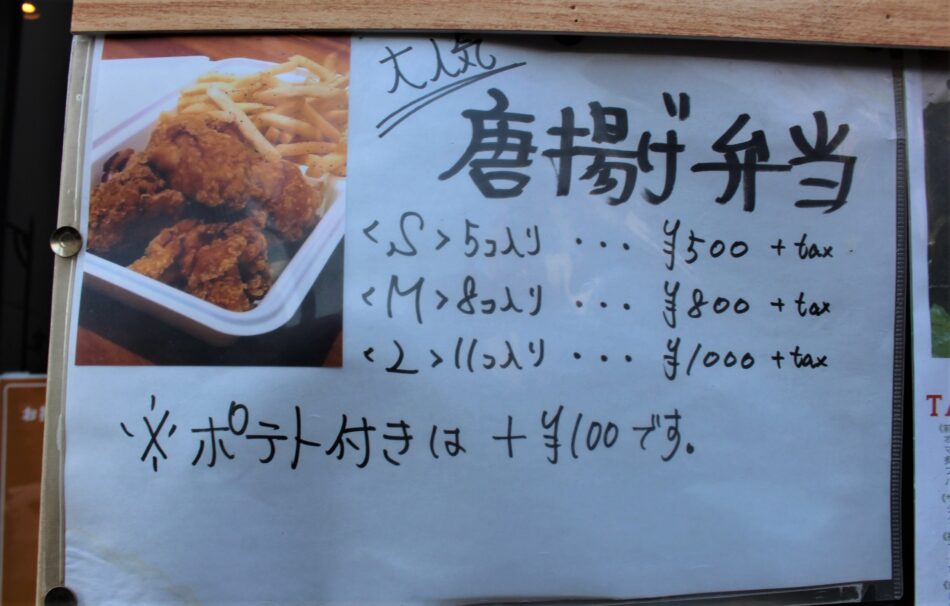 大人気
唐揚げ弁当
<S> 5コ入り ・・・ ¥500 + tax
<M> 8コ入り ・・・ ¥800 + tax
<L> 11コ入り ・・・ ¥1000 + tax
※ポテト付きは +¥100です。